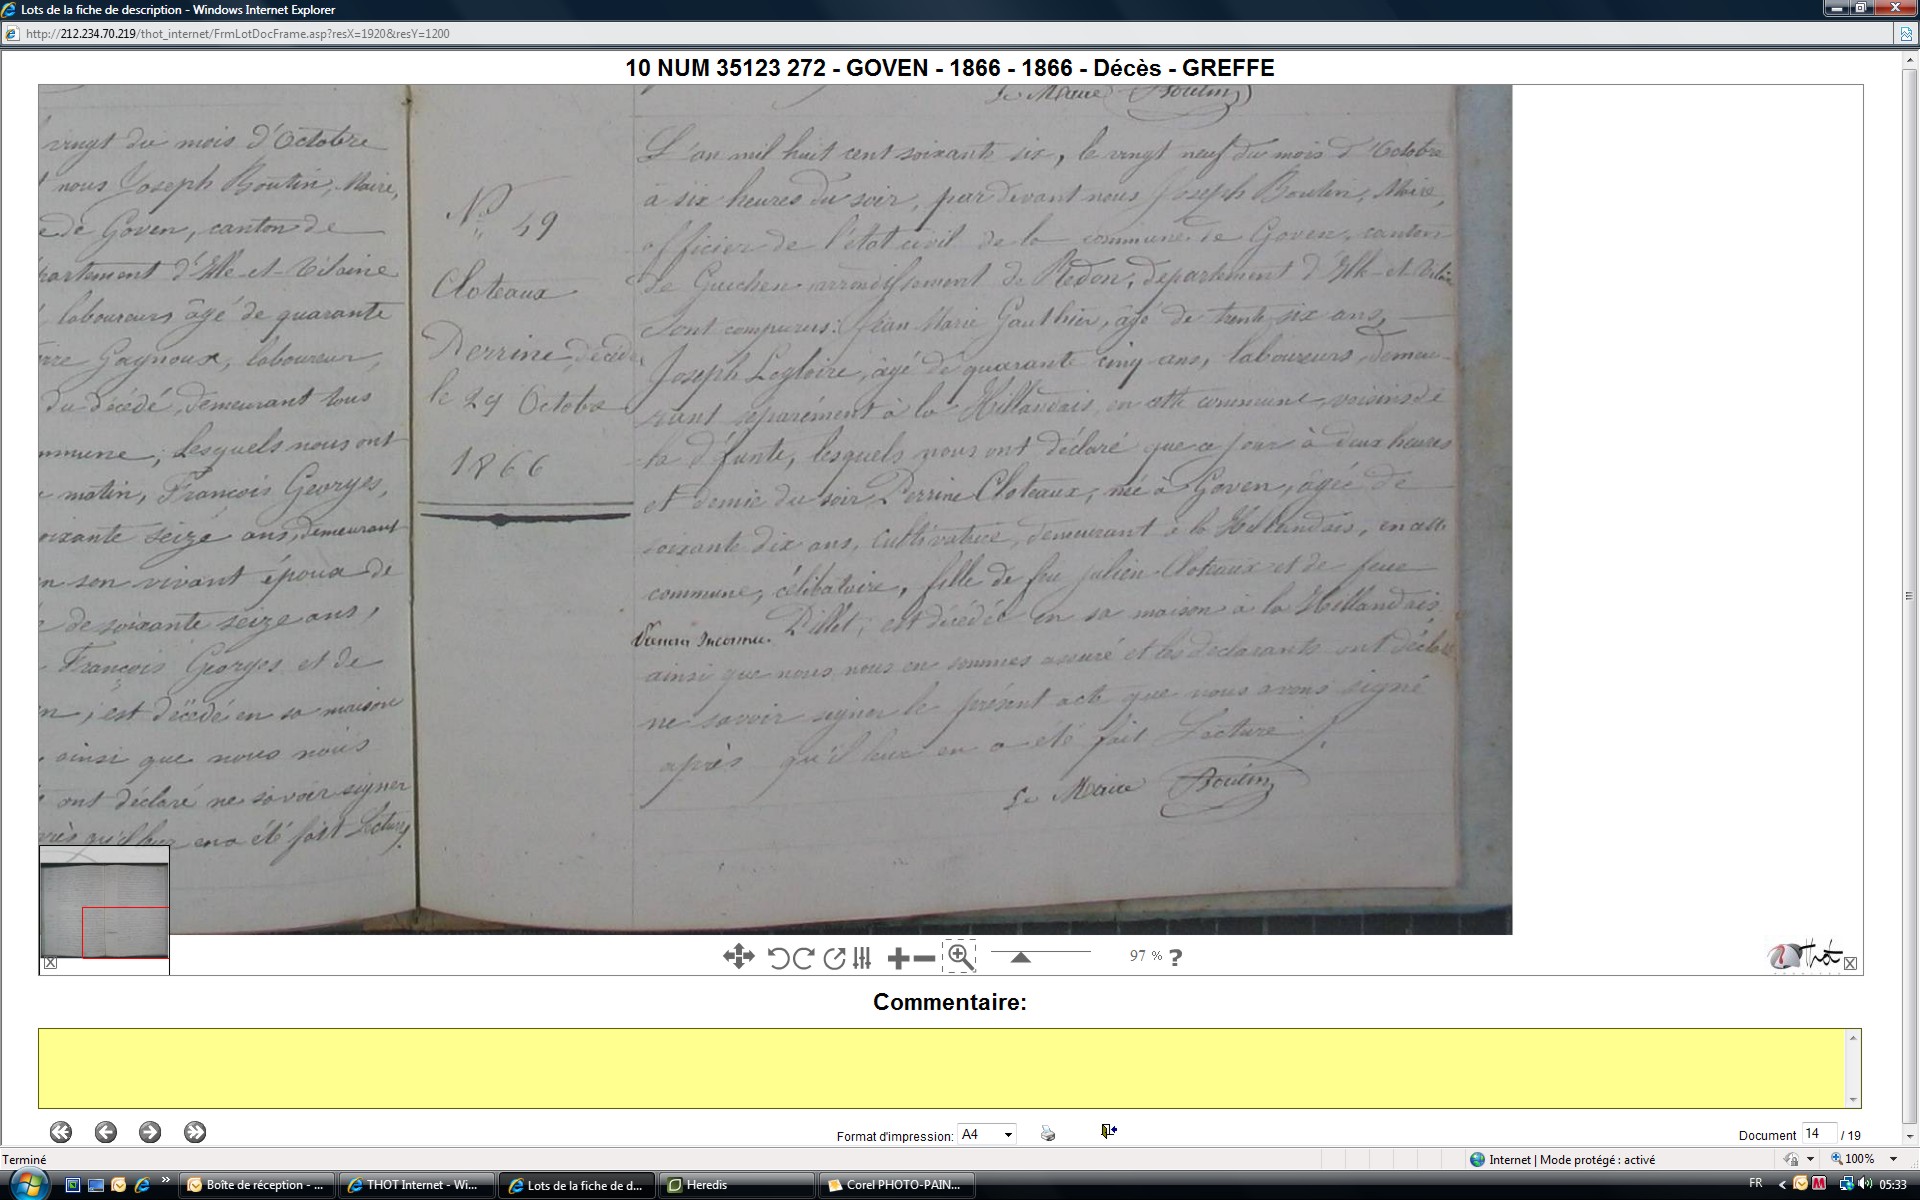 Lots de la fiche de description - Windows Internet Explorer
http://212.234.70.219/thot_internet/FrmLotDocFrame.asp?resX=1920&resY=1200
10 NUM 35123 272 - GOVEN - 1866 - 1866 - Décès - GREFFE
vingt du mois d'Octobre
nous Joseph Boutin, Maire,
de Goven, canton de
partement d'Ille-et-Vilaine
laboureurs âgé de quarante
Gagnoux, laboureur,
du décédé, demeurant tous
mmune, lesquels nous ont
matin, François Georges,
oixante seize ans, demeurant
n son vivant époux de
de soixante seize ans,
François Georges et de
n, est décédé en sa maison
ainsi que nous nous
ont déclaré ne savoir signer
qu'il leur en a été fait Lecture
N° 49
Cloteaux
Perrine, décédée
le 29 Octobre
1866
Le Maire Boutin
L'an mil huit cent soixante six, le vingt neuf du mois d'Octobre
à six heures du soir, par devant nous Joseph Boutin, Maire,
officier de l'état civil de la commune de Goven, canton
de Guichen arrondissement de Redon, département d'Ille-et-Vilaine
sont comparus: Jean Marie Gauthier, âgé de trente six ans,
Joseph Legloire, âgé de quarante cinq ans, laboureurs, demeu-
rant séparément à la Hillandais, en cette commune, voisins de
la défunte, lesquels nous ont déclaré que ce jour à deux heures
et demie du soir Perrine Cloteaux, née à Goven, âgée de
soixante dix ans, cultivatrice, demeurant à la Hillandais, en cette
commune, célibataire, fille de feu Julien Cloteaux et de feue
Prénom Inconnu. Pillet; est décédée en sa maison à la Hillandais
ainsi que nous nous en sommes assuré et les déclarants ont déclaré
ne savoir signer le présent acte que nous avons signé
après qu'il leur en a été fait Lecture
Le Maire Boutin
97 % ?
Thot
Commentaire:
Format d'impression: A4
Document 14 / 19
Terminé
Internet | Mode protégé : activé
100%
Boîte de réception - ...
THOT Internet - Wi...
Lots de la fiche de d...
Heredis
Corel PHOTO-PAIN...
FR
05:33